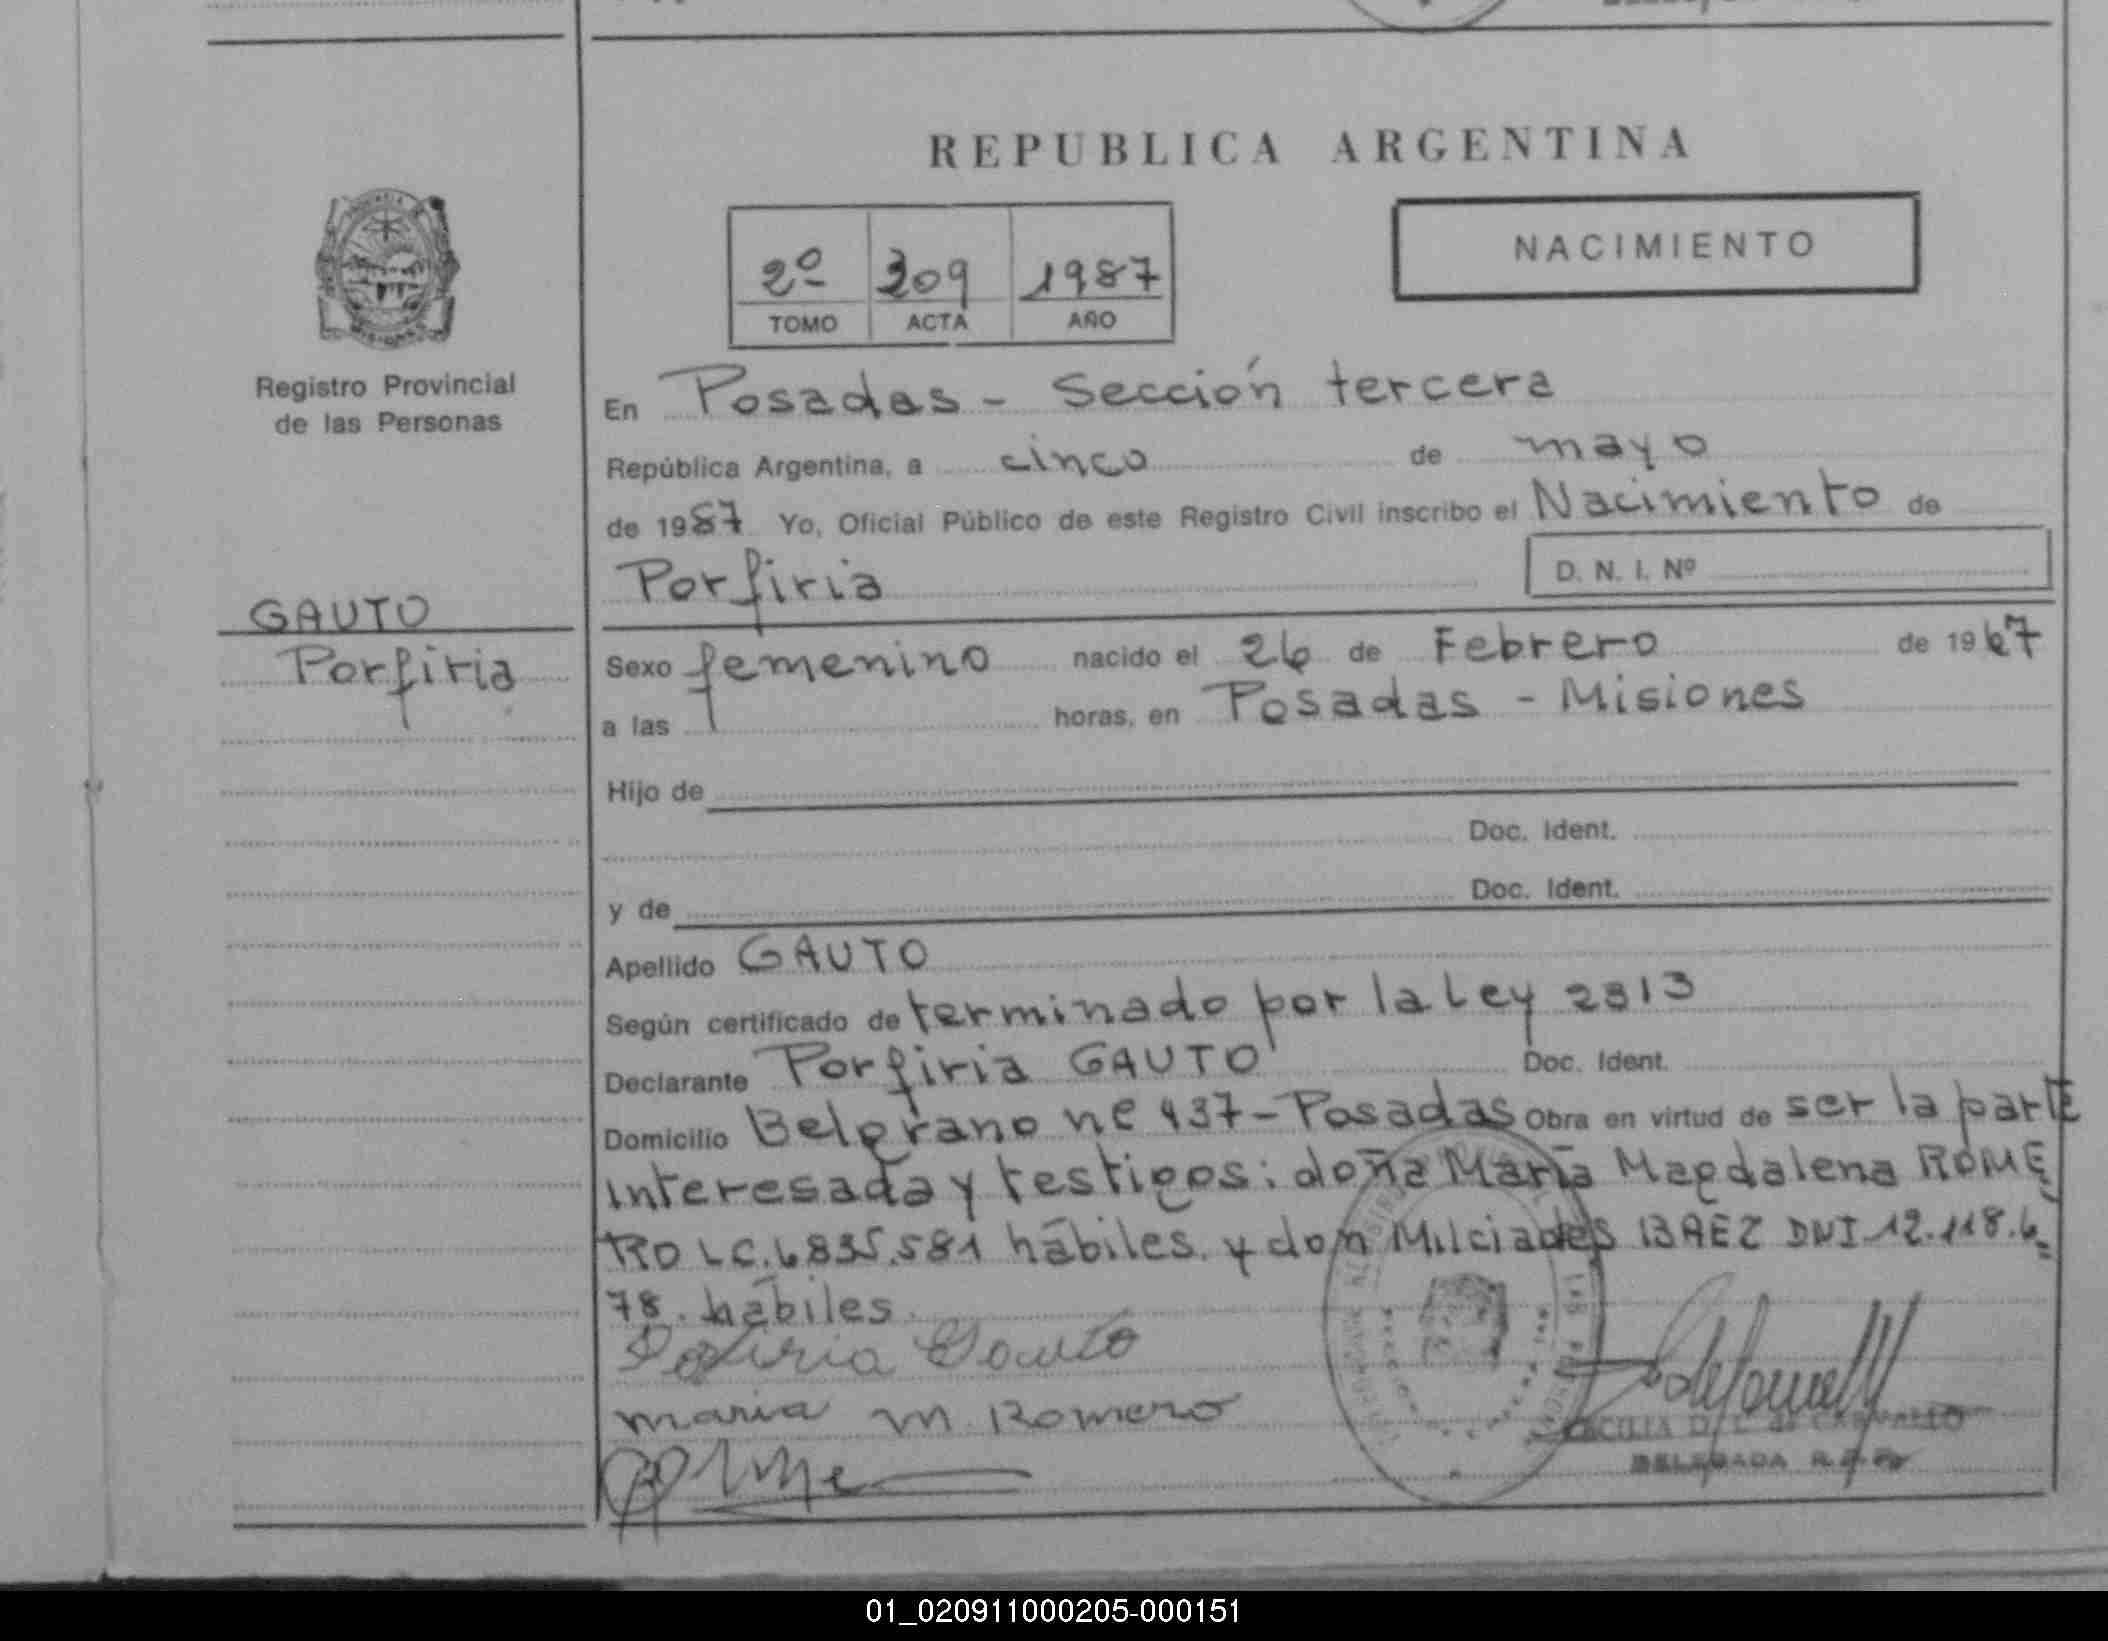 REPUBLICA ARGENTINA
NACIMIENTO
2º 209 1987
TOMO ACTA AÑO
Registro Provincial
de las Personas
En Posadas - Sección tercera
República Argentina, a cinco de mayo
de 1987 Yo, Oficial Público de este Registro Civil inscribo el Nacimiento de
Porfiria D. N. I. Nº
GAUTO
Porfiria
Sexo femenino nacido el 26 de Febrero de 1967
a las horas, en Posadas - Misiones
Hijo de
Doc. Ident.
y de Doc. Ident.
Apellido GAUTO
Según certificado determinado por la Ley 2313
Declarante Porfiria GAUTO Doc. Ident.
Domicilio Belgrano nº 437 - Posadas Obra en virtud de ser la parte
interesada y testigos: doña María Magdalena ROME
RO LC. 6835.581 hábiles. y don Milciades BAEZ DNI 12.118.6=
78. hábiles.
Porfiria Gauto
maria m. Romero
DELEGADA
01_020911000205-000151